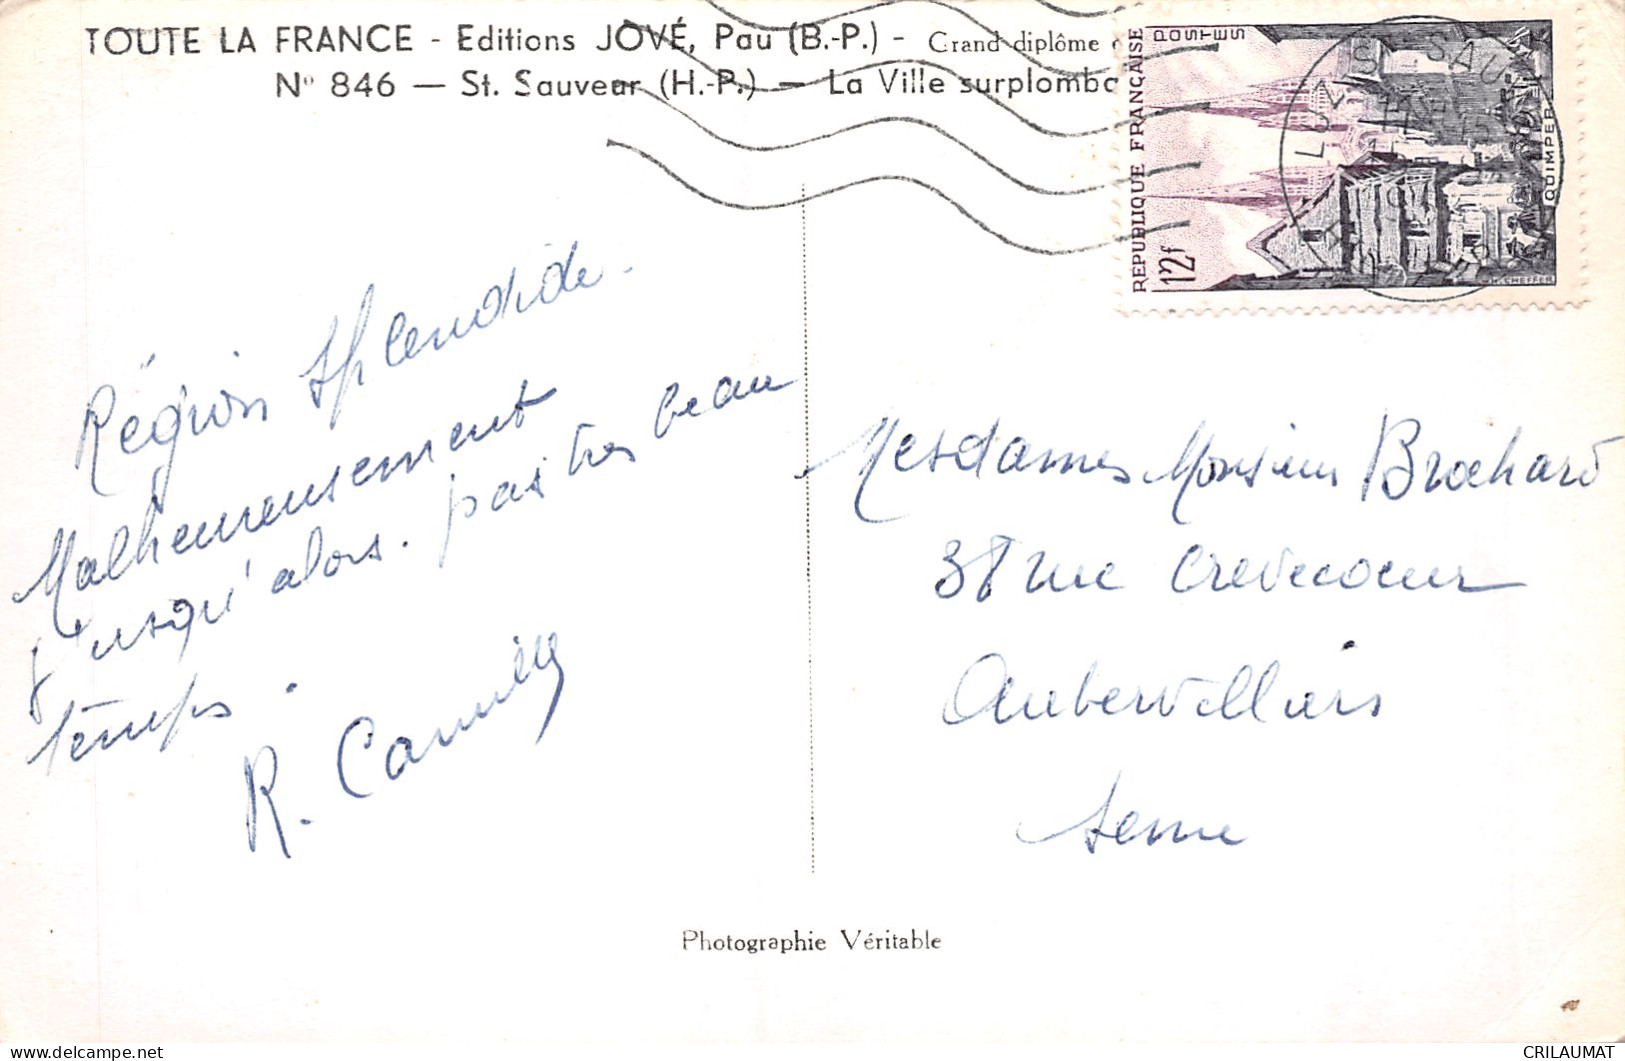 TOUTE LA FRANCE - Editions JOVÉ, Pau (B.-P.) - Grand diplôme
N° 846 — St. Sauveur (H.-P.) — La Ville surplomba
RÉPUBLIQUE FRANÇAISE
POSTES
12f
QUIMPER
CHEFFER
LUZ ST SAUV
Région splendide.
Malheureusement
jusqu'alors. pas très beau
temps.
R. Camille
Mesdames Monsieur Brochard
38 rue Crevecoeur
Aubervilliers
Seine
Photographie Véritable
CRILAUMAT